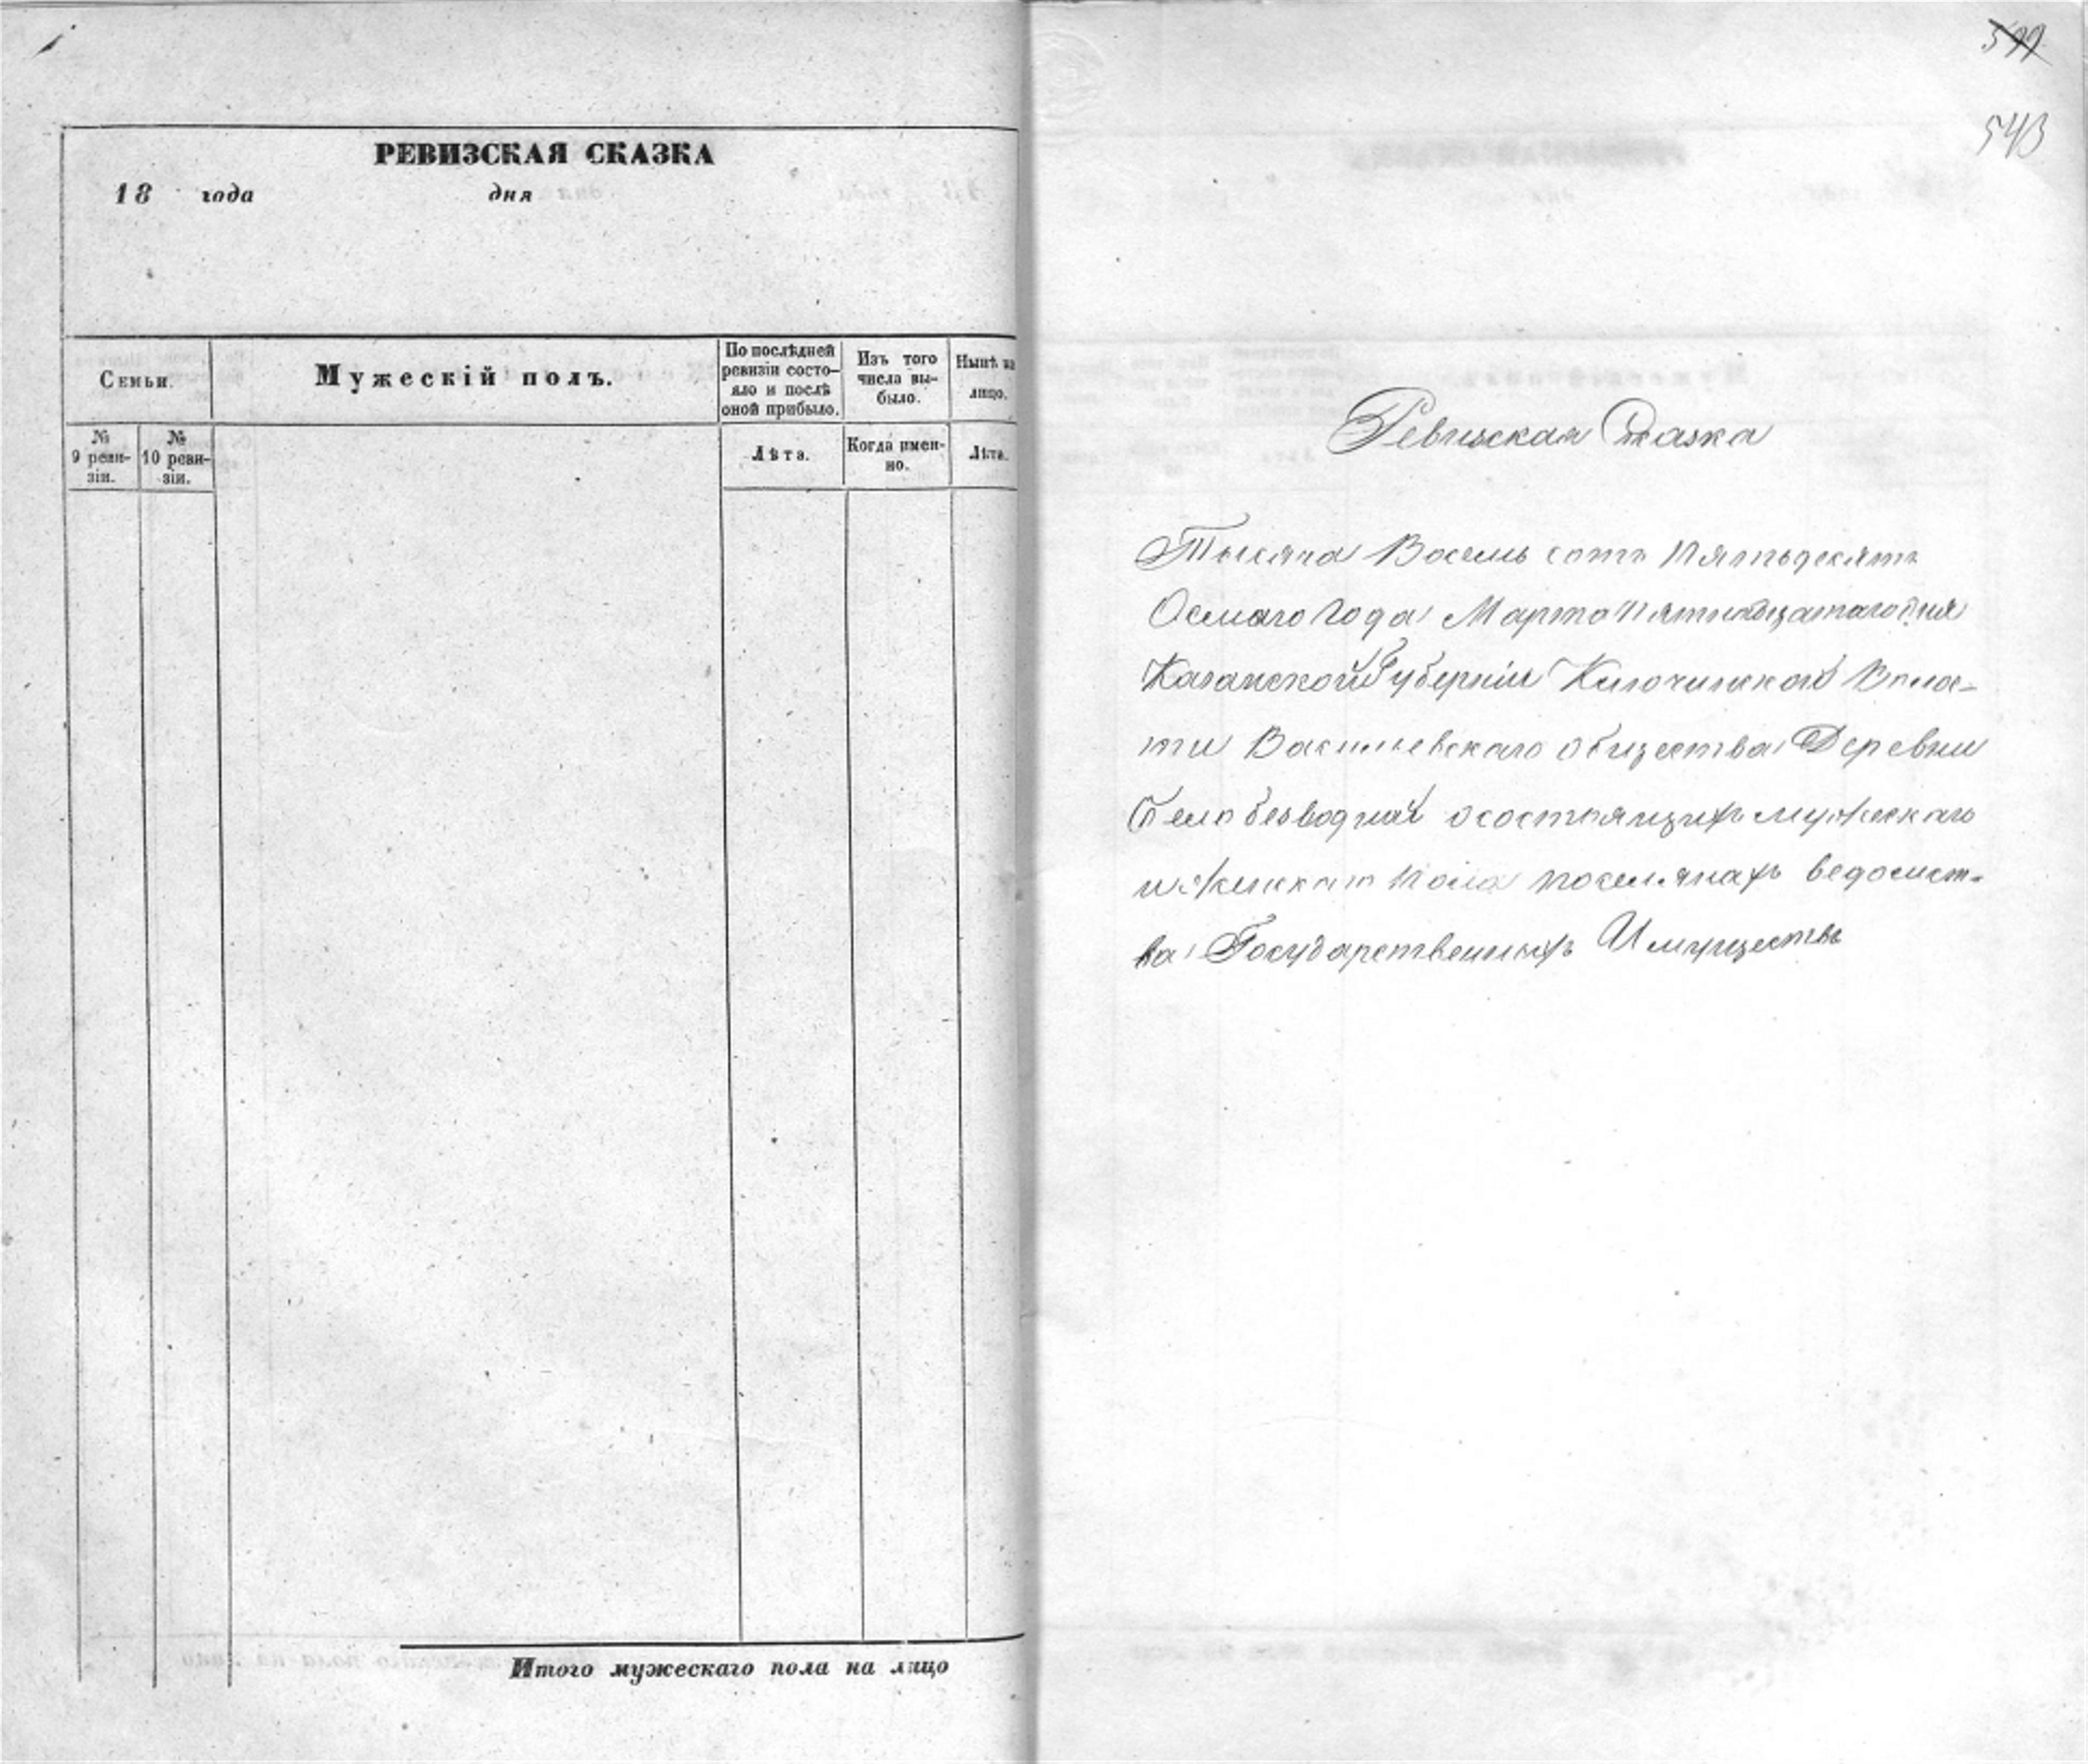 РЕВИЗСКАЯ СКАЗКА
18 года дня
Семьи.
Мужескій полъ.
По послѣдней ревизіи состо-
яло и послѣ оной прибыло.
Изъ того числа вы-
было.
Нынѣ на лицо.
№ 9 реви-
зіи.
№ 10 реви-
зіи.
Лѣта.
Когда имен-
но.
Лѣта.
Итого мужескаго пола на лицо
599
543
Ревизская Сказка
Тысяча Восемь сотъ Пятьдесятъ
Осмаго Года Марта Пятнадцатаго дня
Казанской Губерніи Волос-
ти Васильевскаго общества Деревни
Белобезводной о состоящихъ мужескаго
и женскаго пола поселянахъ ведомст-
ва Государственныхъ Имуществъ